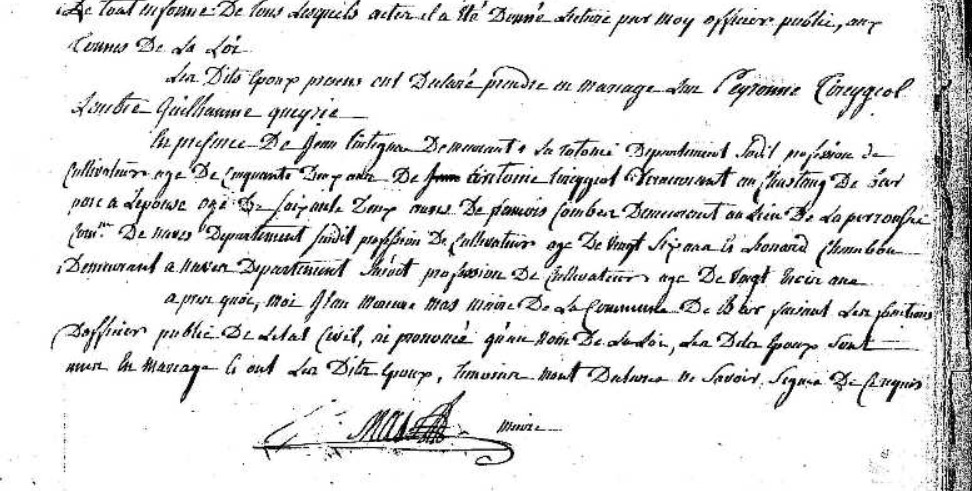 Le tout en forme De tous Lesquels actes il a Eté Donné Lecture par moy officier public, aux
termes De La Loi
Les Dits Epoux presens ont Declaré prendre en mariage L'un Peyronne Tireygeol
L'autre Guilhaume queyrie
En presence De Jean Demeurant a Departement Sudit profession de
Cultivateur age De Cinquante ans De Antoine tireygeol Demeurant au Chastang De bar
pere a Lepouse agé De Soixante Deux annes De francois Combes Demeurant au Lieu De La perrousse
Comne De naves Departement Sudit profession De Cultivateur age De Vingt Six ans et Leonard Chambou
Demeurant a naves Departement Sudit profession De Cultivateur age De Vingt trois ans
apres quoi, moi Jean mas maire De La Commune De Bar faisant Les fonctions
D'officier public De Letat Civil, ai prononcé qu'au Nom De La Loi, Les Dits Epoux Sont
unis En Mariage et ont Les Dits Epoux, temoins Declarés ne Savoir Signer De Ce requis
Mas maire